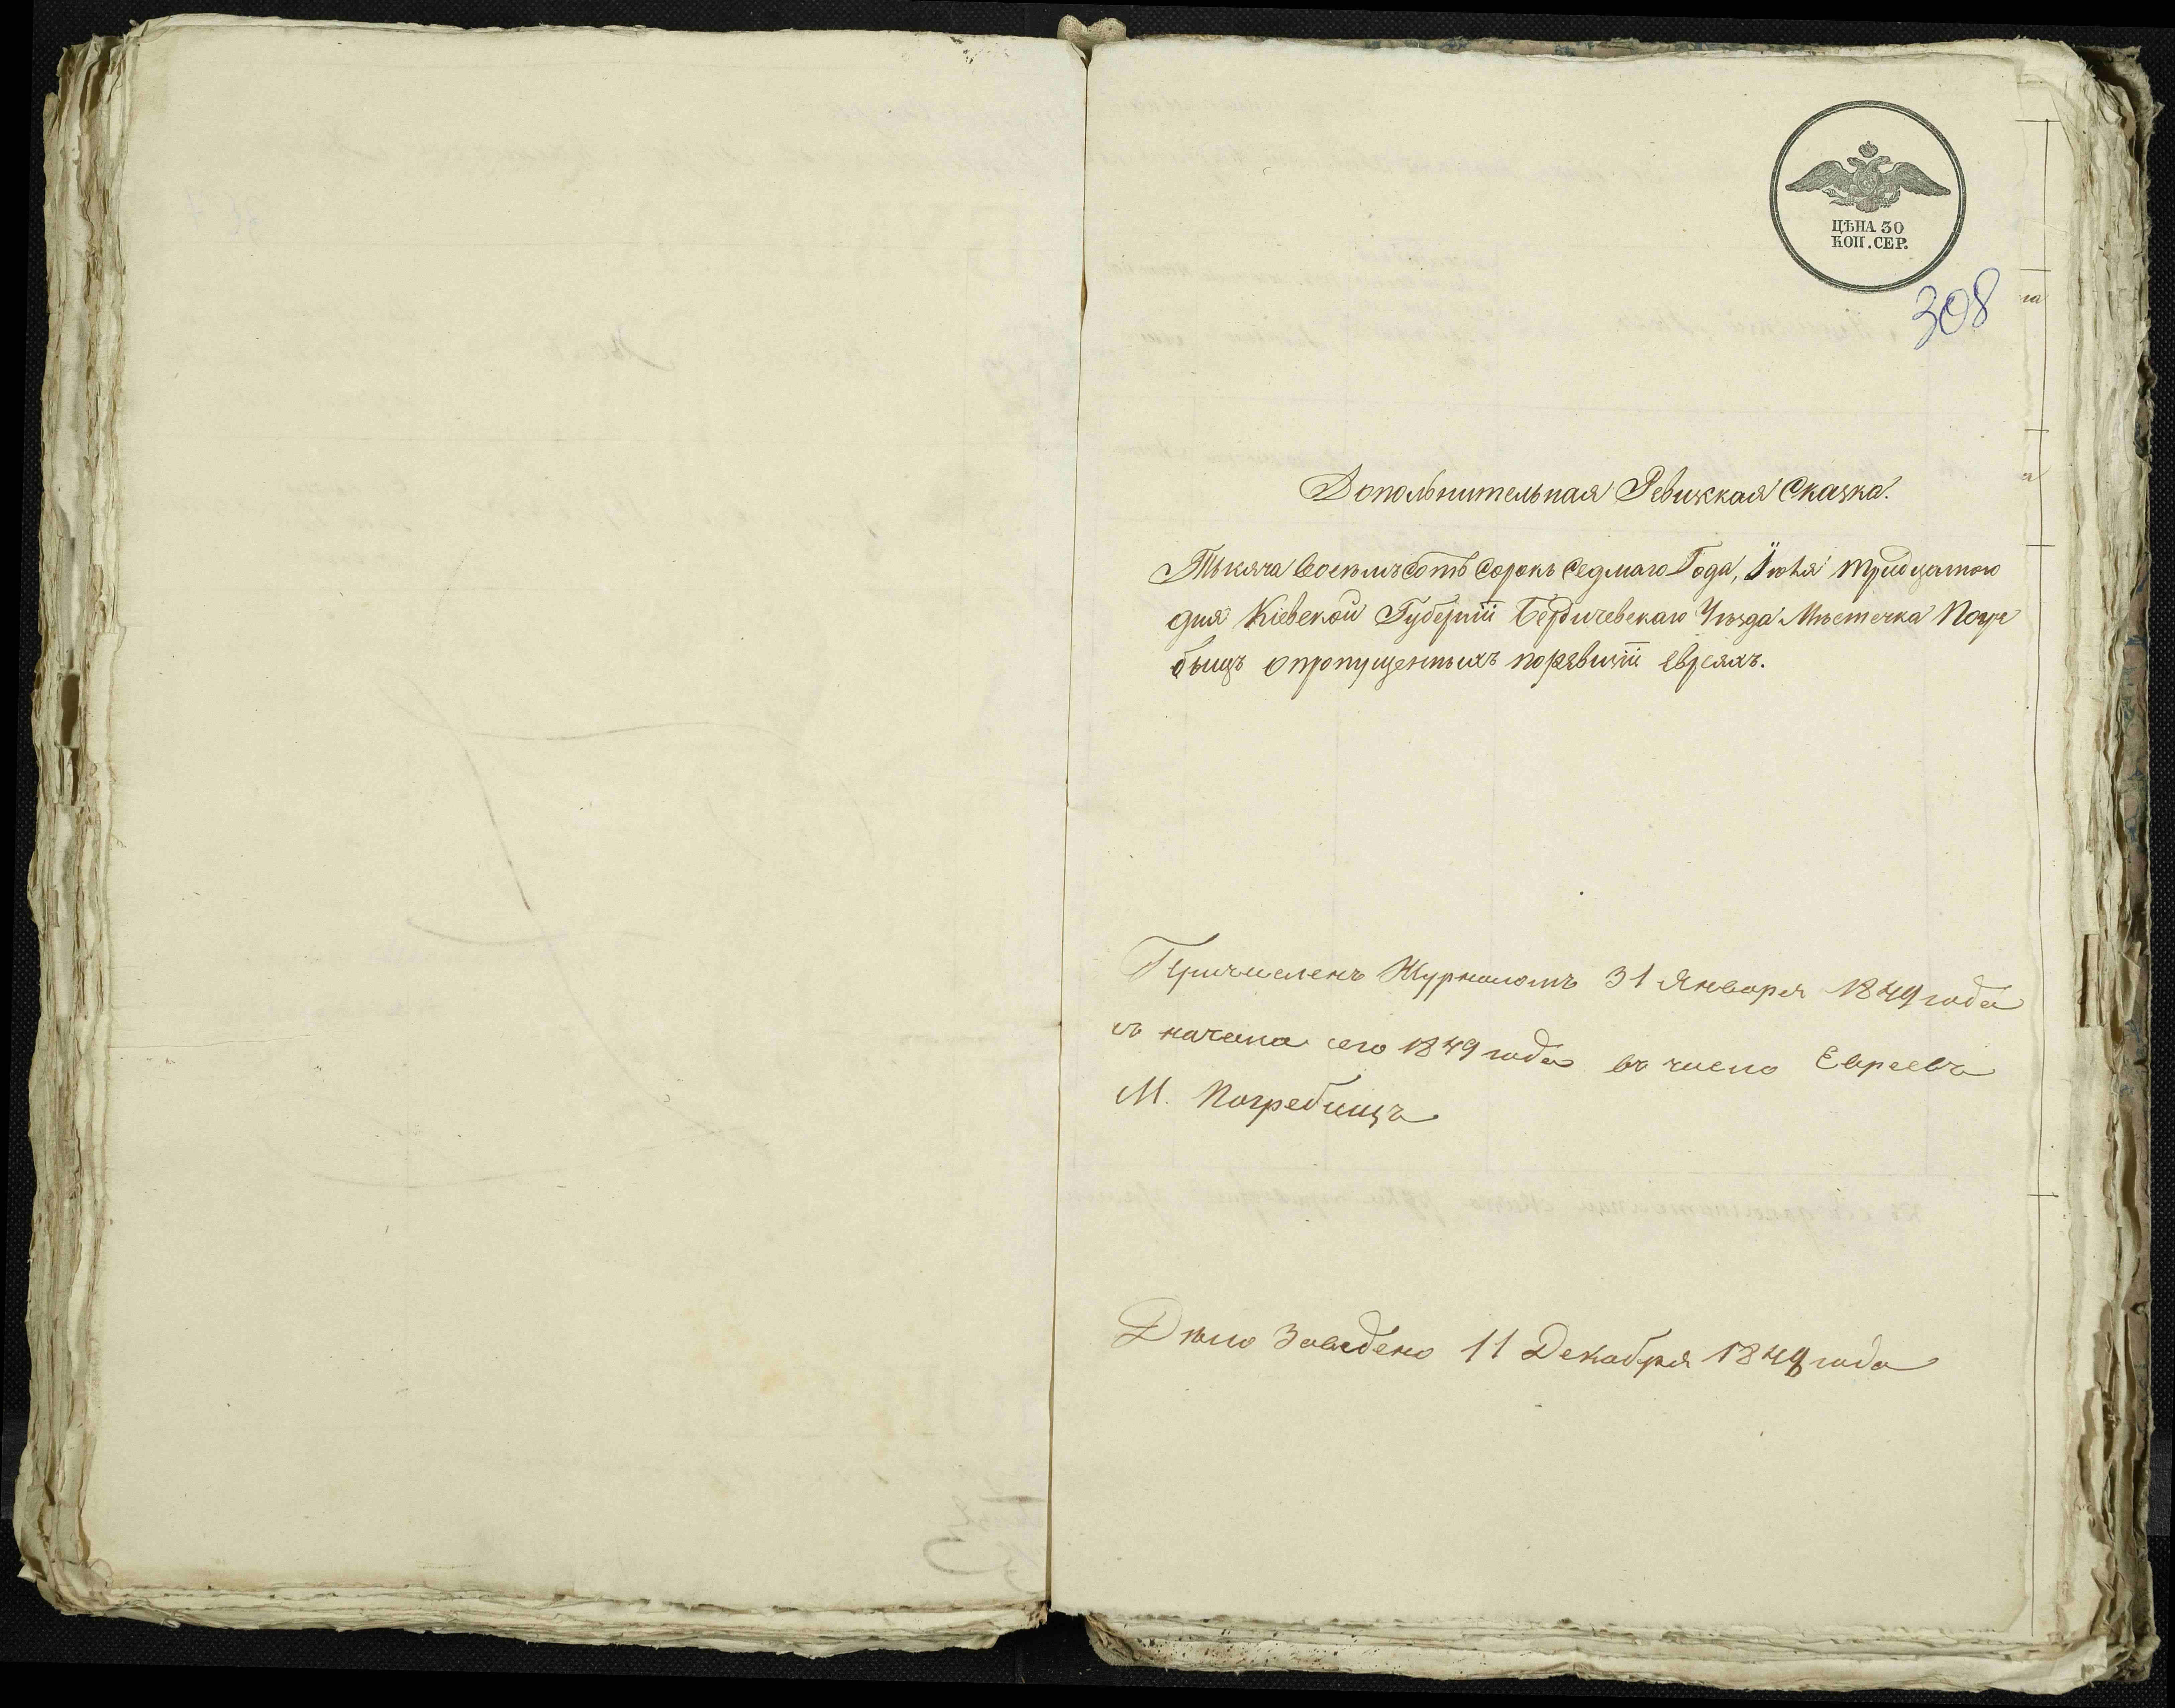 ЦѢНА 30
КОП. СЕР.
308
Дополънительная Ревижкая Сказка.
Тысяча Восемъ Сотъ Сорокъ Седмаго Года, Іюня Тридцатого
дня Кіевской Губерніи Бердичевскаго Уѣзда Мѣстечка Погре
бищъ о пропущенныхъ по ревизіи Евреяхъ.
Причисленъ Журналомъ 31 Января 1849 года
съ начала сего 1849 года въ число Евреевъ
М. Погребищъ
Дѣло Заведено 11 Декабря 1849 года